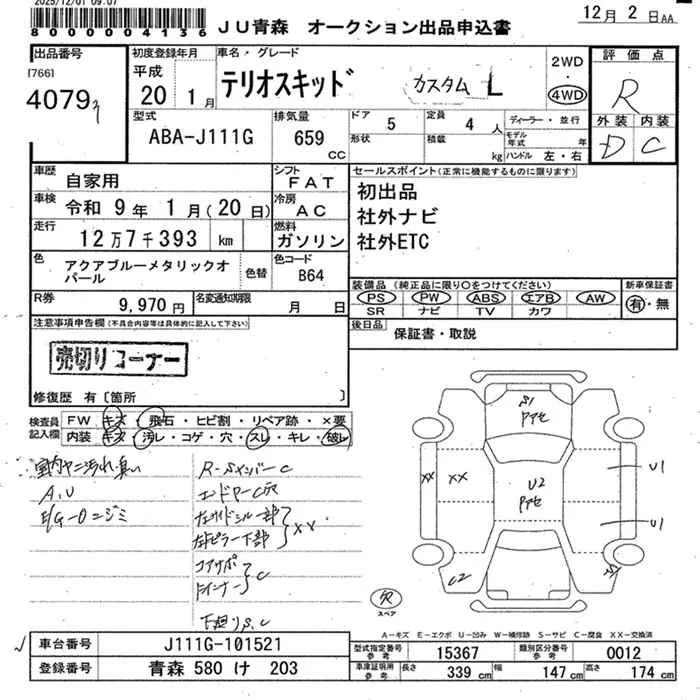 2025/12/01 09:07
8000004136
JU青森 オークション出品申込書
12月 2日AA
出品番号
[766]
4079
初度登録年月
平成
20 1月
車名・グレード
テリオスキッド カスタム L
2WD
・
4WD
評価点
R
外装 内装
D C
型式
ABA-J111G
排気量
659
CC
ドア 5
形状
定員 4 人
積載 kg
ディーラー・並行
モデル年式 年
ハンドル 左・右
車歴
自家用
シフト
FAT
セールスポイント(正常に機能するものに限ります)
初出品
社外ナビ
社外ETC
車検
令和 9年 1月(20日)
冷房
AC
走行
12万7千393 km
燃料
ガソリン
色
アクアブルーメタリックオパール
色替
色コード
B64
装備品 (純正品に限り○をつけてください)
PS PW ABS エアB AW
SR ナビ TV カワ
新車保証書
有・無
R券
9,970円
名変通知期限
月 日
後日品
保証書・取説
注意事項申告欄(不具合内容等は具体的に記入して下さい)
売切りコーナー
修復歴 有〔箇所 〕
検査員記入欄
FW キズ・飛石・ヒビ割・リペア跡・×要
内装 キズ・汚レ・コゲ・穴・スレ・キレ・破レ
室内ヤニ汚れ臭い
A,U
E/G-Oニジミ
R-Sメンバー C
エンドワーC穴
左サイドシル一部
左非ピラー下部
XX
コアサポ
ドインナー
C
下廻りS,C
S1
アセ
U2
アセ
XX
XX
U1
U1
C2
XX
欠
スペア
A-キズ E-エクボ U-凹み W-補修跡 S-サビ C-腐食 XX-交換済
車台番号
J111G-101521
登録番号
青森 580 け 203
型式指定番号
参考
15367
類別区分番号
参考
0012
車庫証明用
参考
長さ 339 cm 幅 147 cm 高さ 174 cm